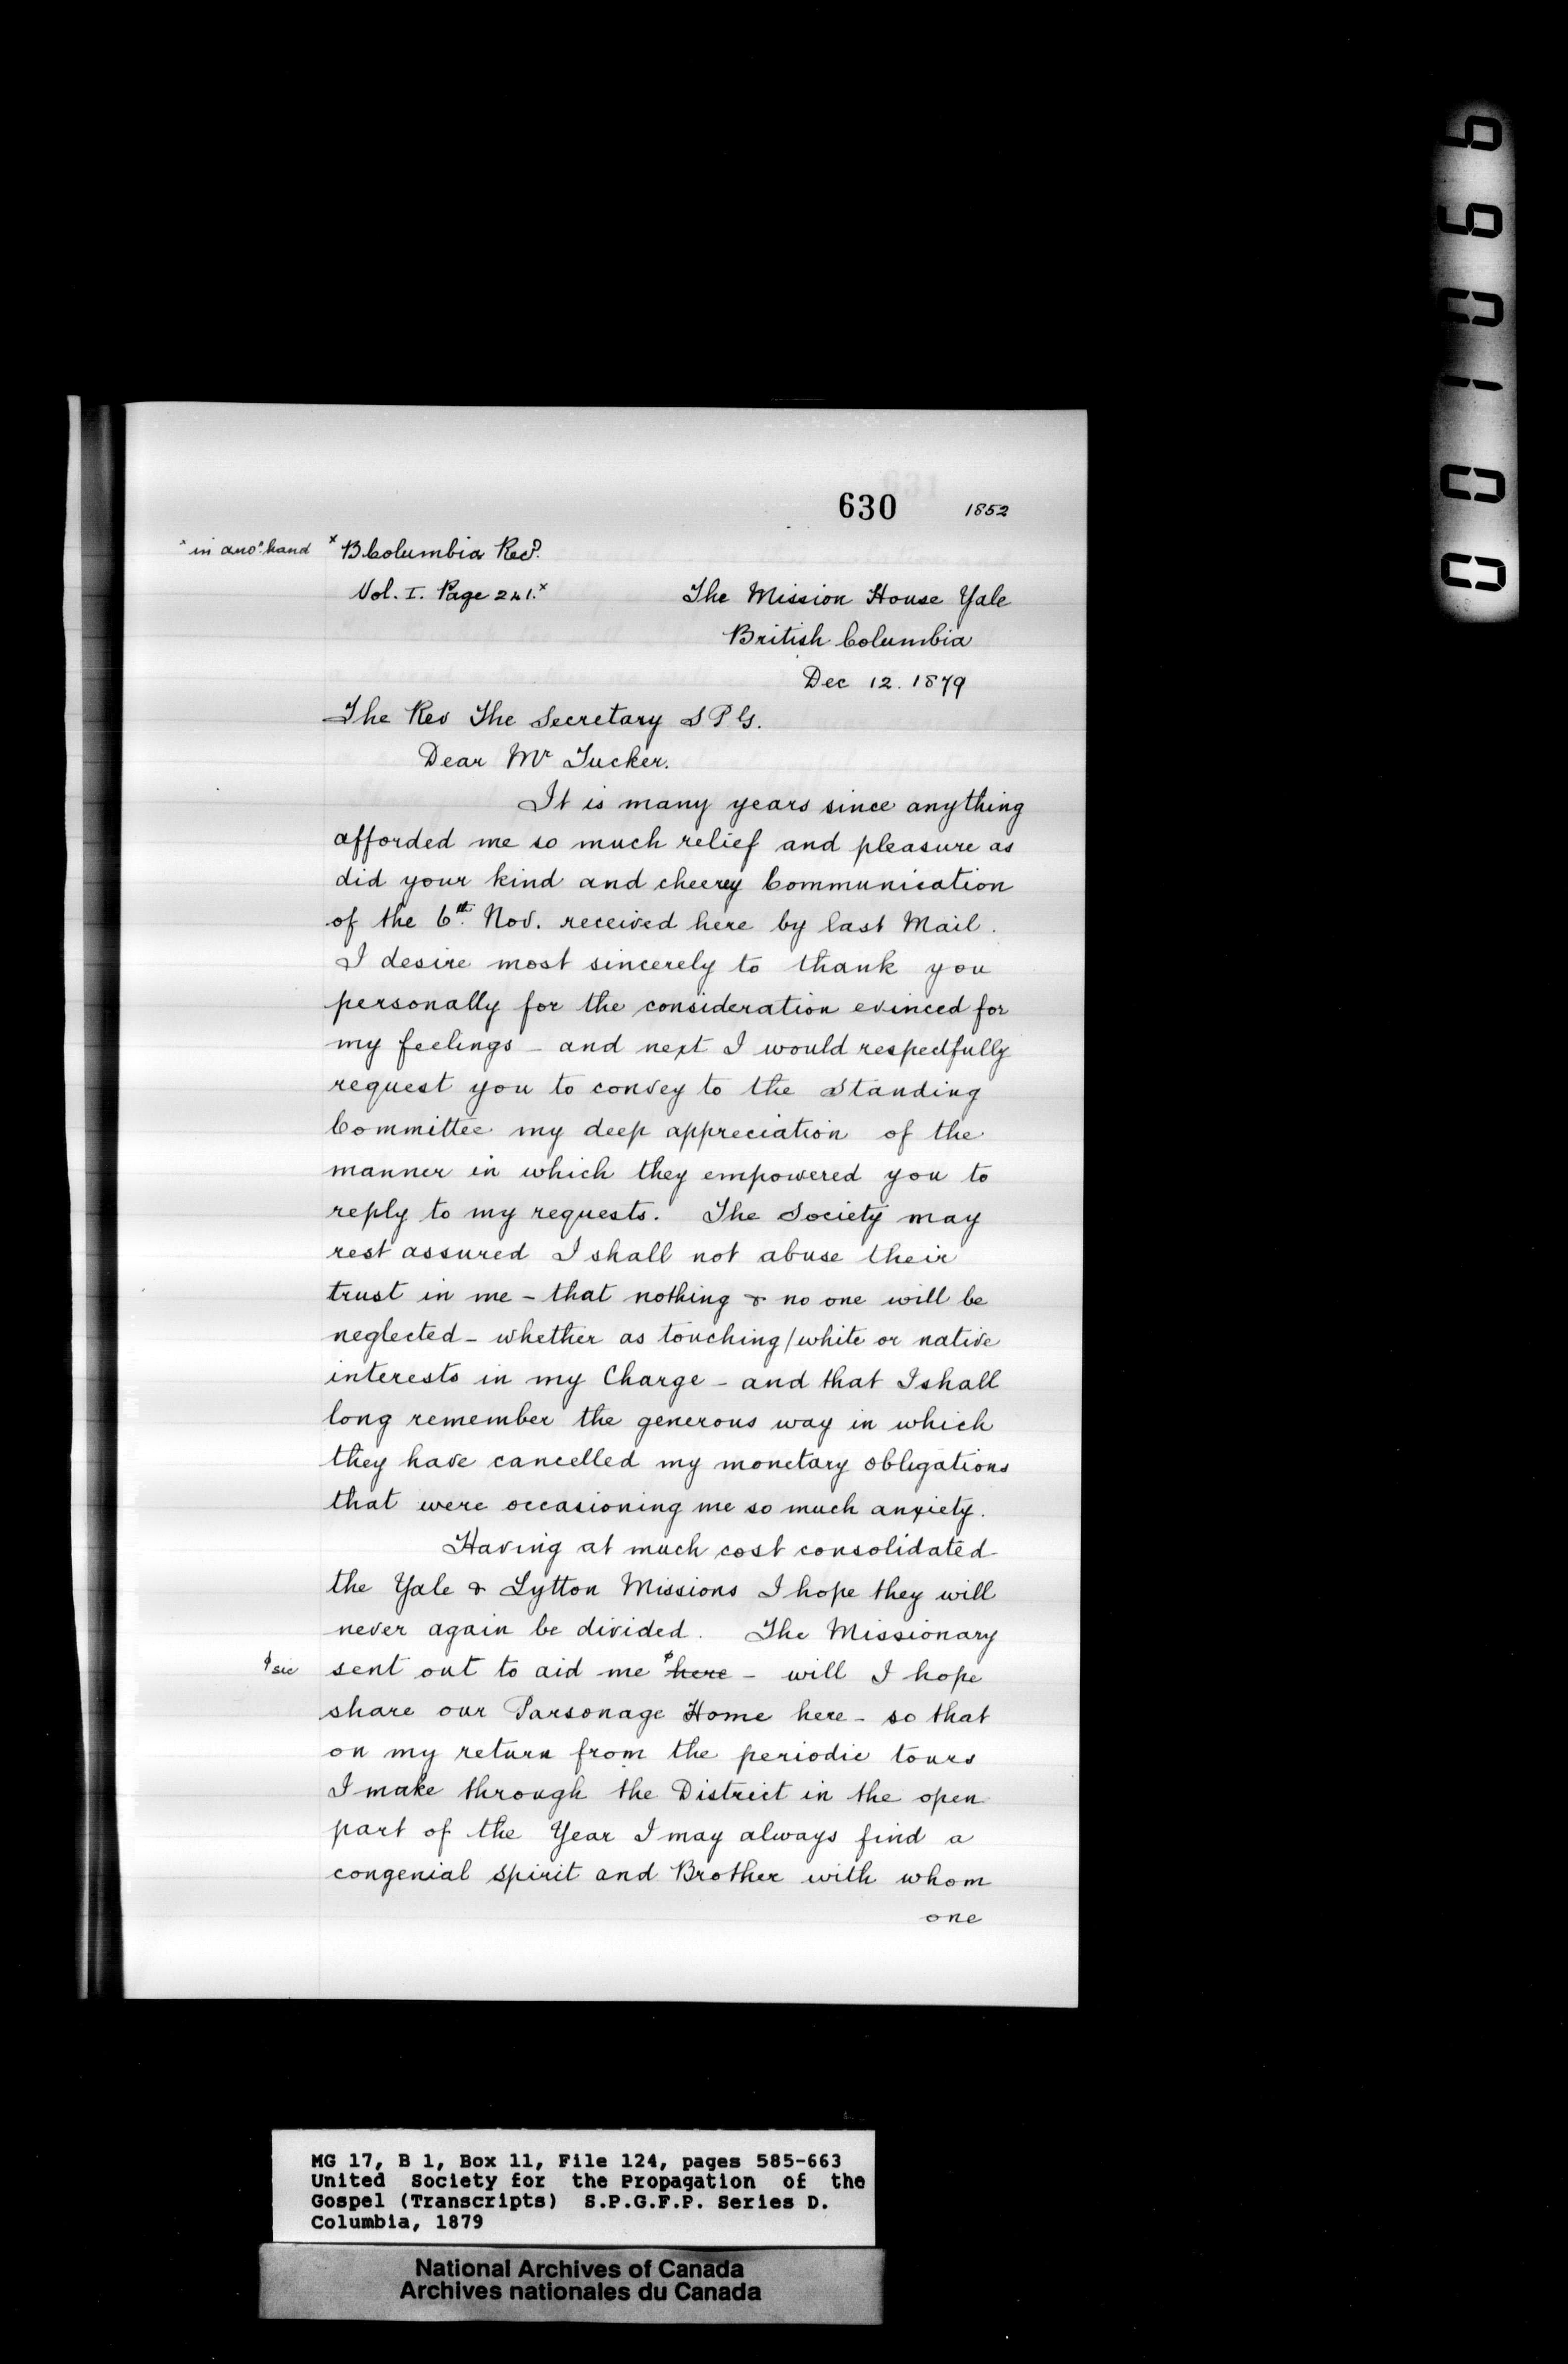 630 1852
x in ano.r hand x B. Columbia Recd.
Vol. I. Page 241. x The Mission House Yale
British Columbia
Dec 12. 1879
The Rev The Secretary S P G.
Dear Mr Tucker.
It is many years since anything
afforded me so much relief and pleasure as
did your kind and cheerey Communication
of the 6th. Nov. received here by last Mail.
I desire most sincerely to thank you
personally for the consideration evinced for
my feelings - and next I would respectfully
request you to convey to the Standing
Committee my deep appreciation of the
manner in which they empowered you to
reply to my requests. The Society may
rest assured I shall not abuse their
trust in me - that nothing & no one will be
neglected - whether as touching/white or native
interests in my Charge - and that I shall
long remember the generous way in which
they have cancelled my monetary obligations
that were occasioning me so much anxiety.
Having at much cost consolidated
the Yale & Lytton Missions I hope they will
never again be divided. The Missionary
ϕ sic sent out to aid me ϕ here - will I hope
share our Parsonage Home here - so that
on my return from the periodic tours
I make through the District in the open
part of the Year I may always find a
congenial spirit and Brother with whom
one
001066
MG 17, B 1, Box 11, File 124, pages 585-663
United Society for the Propagation of the
Gospel (Transcripts) S.P.G.F.P. Series D.
Columbia, 1879
National Archives of Canada
Archives nationales du Canada